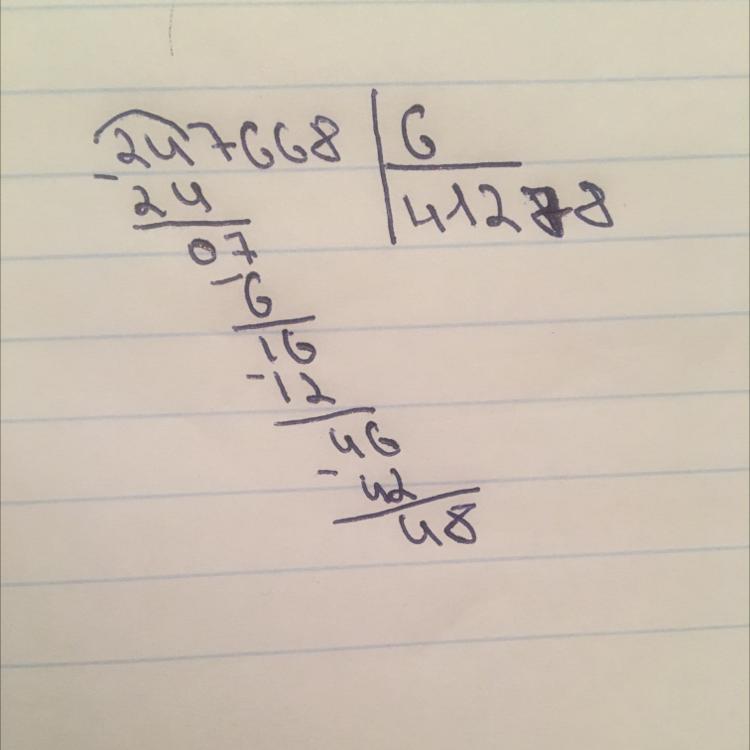 247668 6
- 24 41278
07
- 6
16
- 12
46
- 42
48